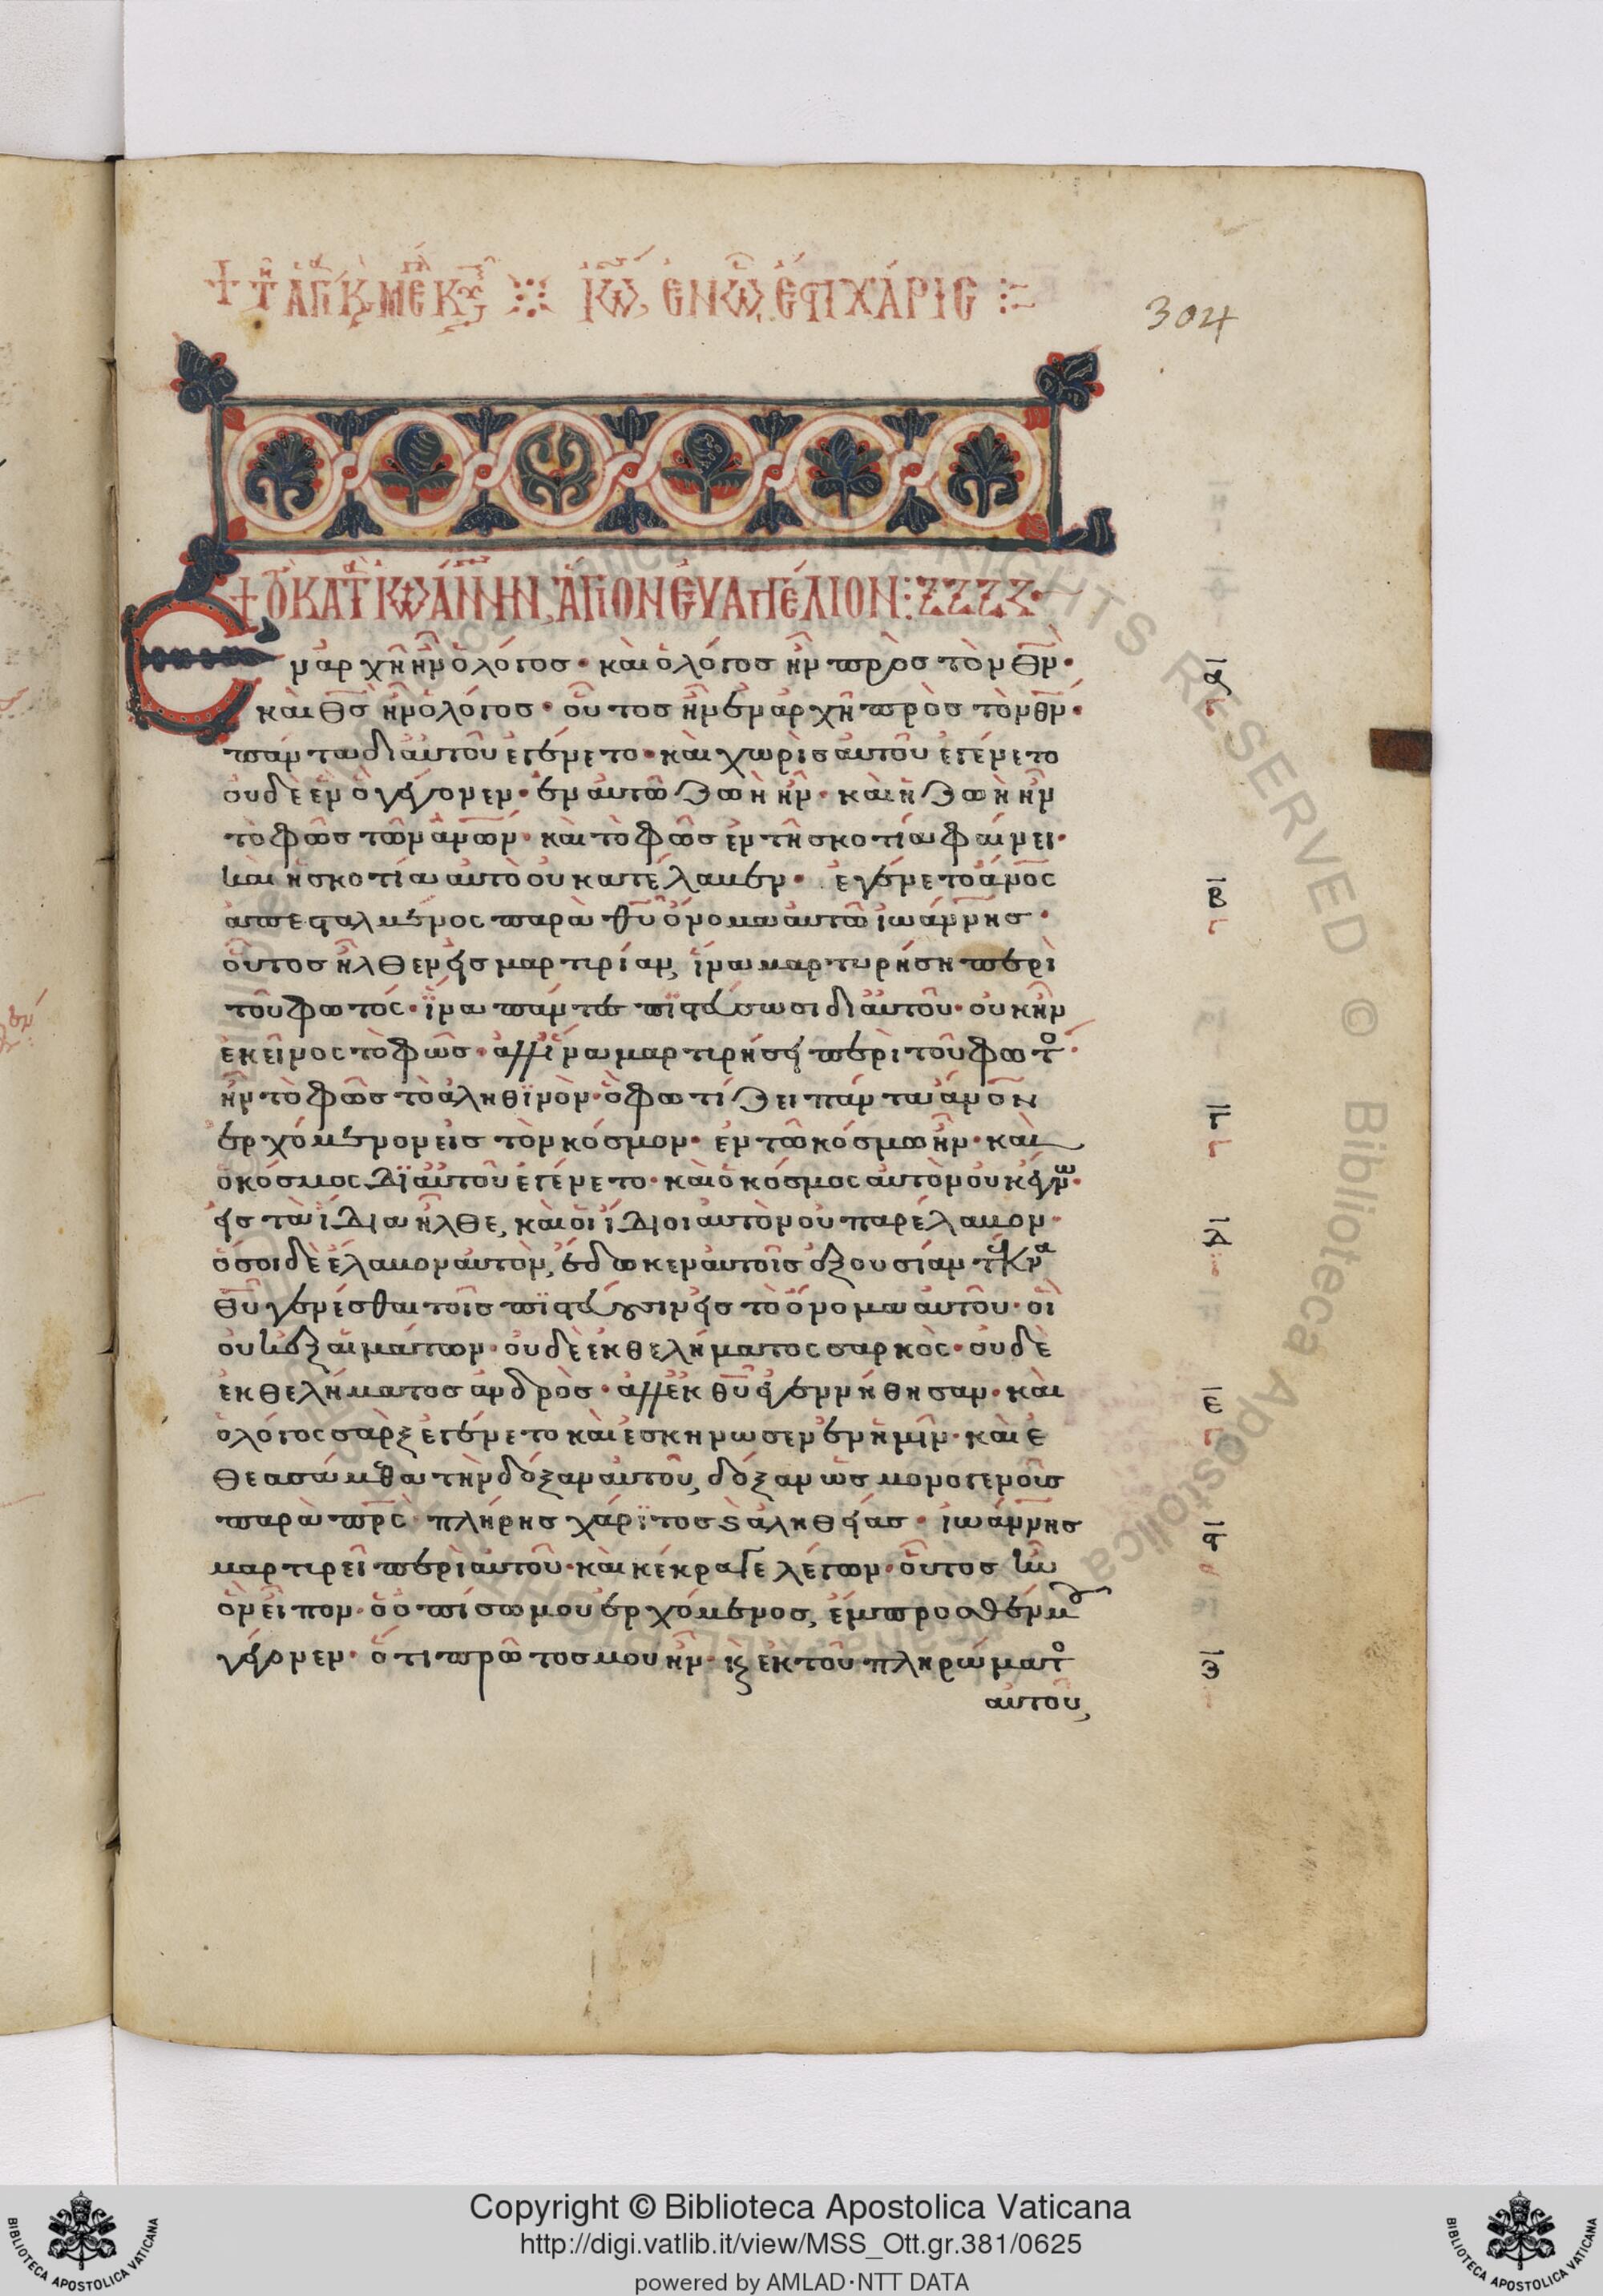 304
+ ὉΚΑΤ ἸΩΑΝΝΗΝ, ἍΓΙΟΝ ΕΥΑΓΓΕΛΙΟΝ:
Ἐν ἀρχῆ ἦν ὁ λόγος· καὶ ὁ λόγος ἦν πρὸς τὸν θν·
καὶ θς ἦν ὁ λόγος· οὗτος ἦν ἐν ἀρχῆ πρὸς τὸν θν·
πάντα δι αὐτοῦ ἐγένετο· καὶ χωρὶς αὐτοῦ ἐγένετο
οὐδὲ ἓν ὃ γέγονεν· ἐν αὐτῶ ζωὴ ἦν· καὶ ἡ ζωὴ ἦν
τὸ φῶς τῶν ἀνων· καὶ τὸ φῶς ἐν τῆ σκοτία φαίνει·
καὶ ἡ σκοτία αὐτὸ οὐ κατέλαβεν· ἐγένετο ἄνος
ἀπεσταλμένος παρὰ θυ ὄνομα αὐτῶ ἰωάννης·
οὗτος ἦλθεν εἰς μαρτιρίαν, ἵνα μαρτυρήση περὶ
τοῦ φωτός· ἵνα πάντες πιστεύσωσι δι αὐτοῦ· οὐκ ἦν
ἐκεῖνος τὸ φῶς· ἀλλ ἵνα μαρτιρήσει περὶ τοῦ φωτο
ἦν τὸ φῶς τὸ ἀληθϊνὸν· ὃ φωτίζει πάντα ἀνον
ἐρχόμενον εἰς τὸν κόσμον· ἐν τῶ κόσμω ἦν· καὶ
ὁ κόσμος δϊ αὐτοῦ ἐγένετο· καὶ ὁ κόσμος αὐτὸν οὐκ ἔγνω·
εἰς τὰ ἴδια ἦλθε, καὶ οἱ ἴδιοι αὐτὸν οὐ παρέλαβον·
ὅσοι δὲ ἔλαβον αὐτὸν, ἔδωκεν αὐτοῖς ἐξουσίαν τεκνα
θυ γενέσθαι τοῖς πϊστεύουσιν εἰς τὸ ὄνομα αὐτοῦ· οἳ
οὐκ ἐξ αἱμάτων· οὐδὲ ἐκ θελήματος σαρκὸς· οὐδὲ
ἐκ θελήματος ἀνδρὸς· ἀλλ ἐκ θυ ἐγεννήθησαν· καὶ
ὁ λόγος σὰρξ ἐγένετο καὶ ἐσκήνωσεν ἐν ἡμῖν· καὶ ἐ
θεασάμεθα τὴν δόξαν αὐτοῦ, δόξαν ὡς μονογενοῦς
παρὰ πρς· πλήρης χάρϊτος ϗ ἀληθείας· ἰωάννης
μαρτιρεῖ περὶ αὐτοῦ· καὶ κέκραγε λέγων· οὗτος ἦν
ὃν εἶπον· ὁ ὀπίσω μου ἐρχόμενος, ἔμπροσθέν μου
γέγονεν· ὅτι πρῶτός μου ἦν· ϗ ἐκ τοῦ πληρώματο
αὐτοῦ,
α
Β
Γ
Δ
Ε
Ϛ
Ζ
© Biblioteca Apostolica Vaticana
ALL RIGHTS RESERVED
BIBLIOTECA APOSTOLICA VATICANA
Copyright © Biblioteca Apostolica Vaticana
http://digi.vatlib.it/view/MSS_Ott.gr.381/0625
powered by AMLAD·NTT DATA
BIBLIOTECA APOSTOLICA VATICANA